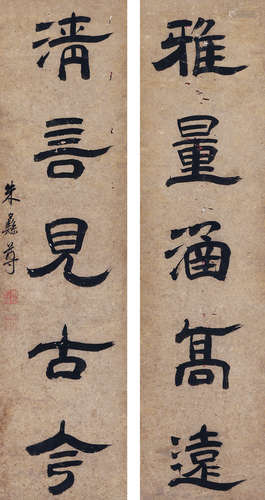 雅量涵高遠
清言見古今
朱彝尊